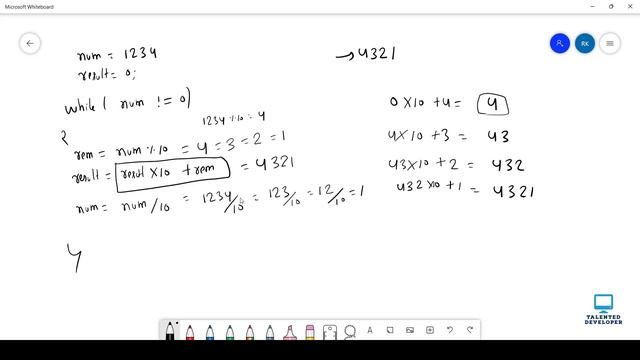 Microsoft Whiteboard
RK
num = 1234
→ 4321
result = 0;
while( num != 0)
{
1234 % 10 = 4
rem = num % 10 = 4 = 3 = 2 = 1
result = result X 10 + rem = 4321
num = num / 10 = 1234/10 = 123/10 = 12/10 = 1
}
0 X 10 + 4 = 4
4 X 10 + 3 = 43
43 X 10 + 2 = 432
432 X 10 + 1 = 4321
TALENTED
DEVELOPER
A